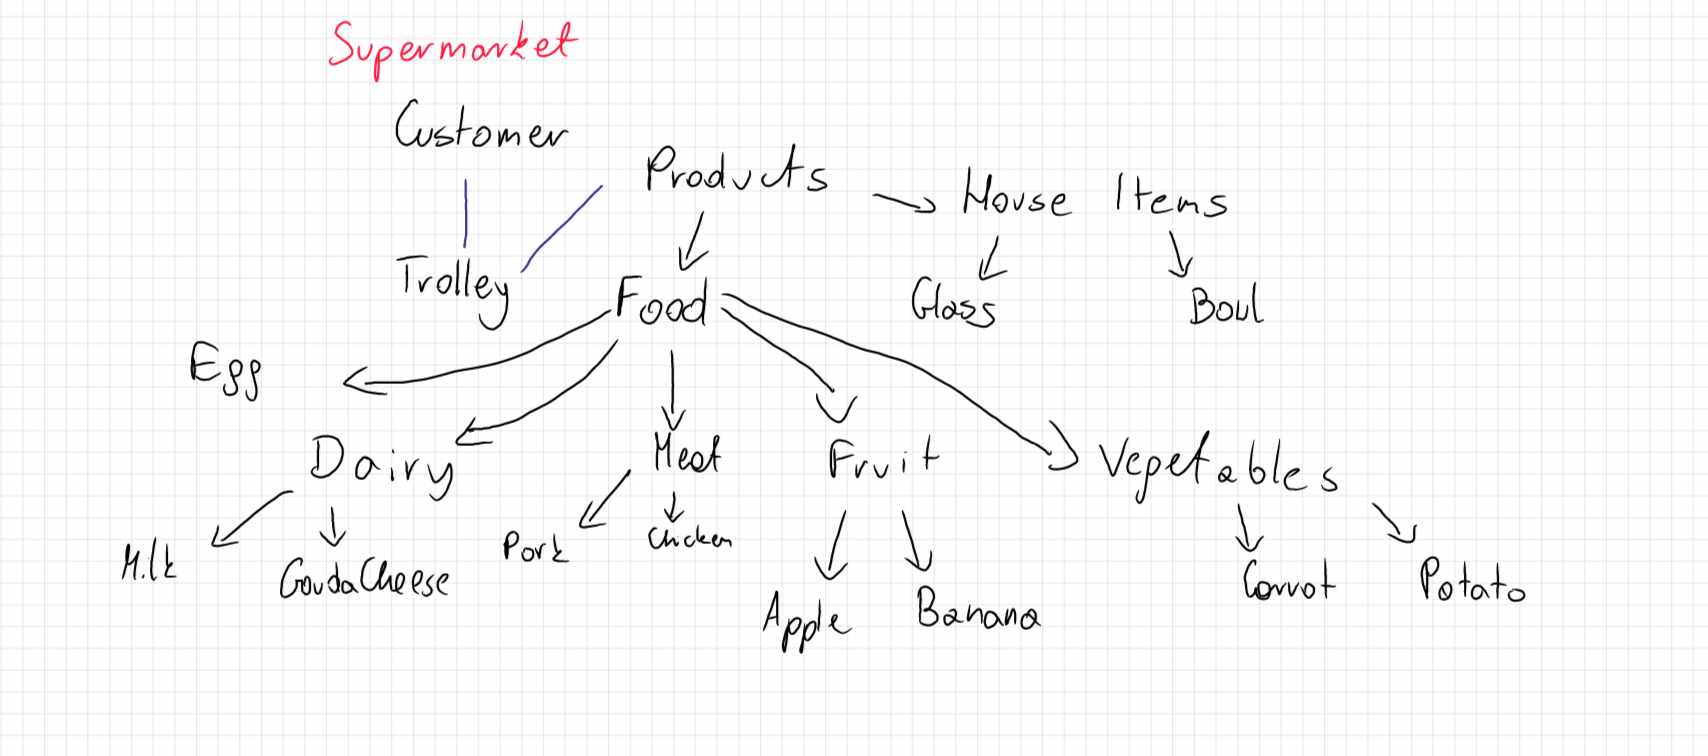 Supermarket
Customer
Products
House Items
Trolley
Food
Glass
Boul
Egg
Dairy
Meat
Fruit
Vegetables
Milk
GoudaCheese
Pork
Chicken
Apple
Banana
Carrot
Potato